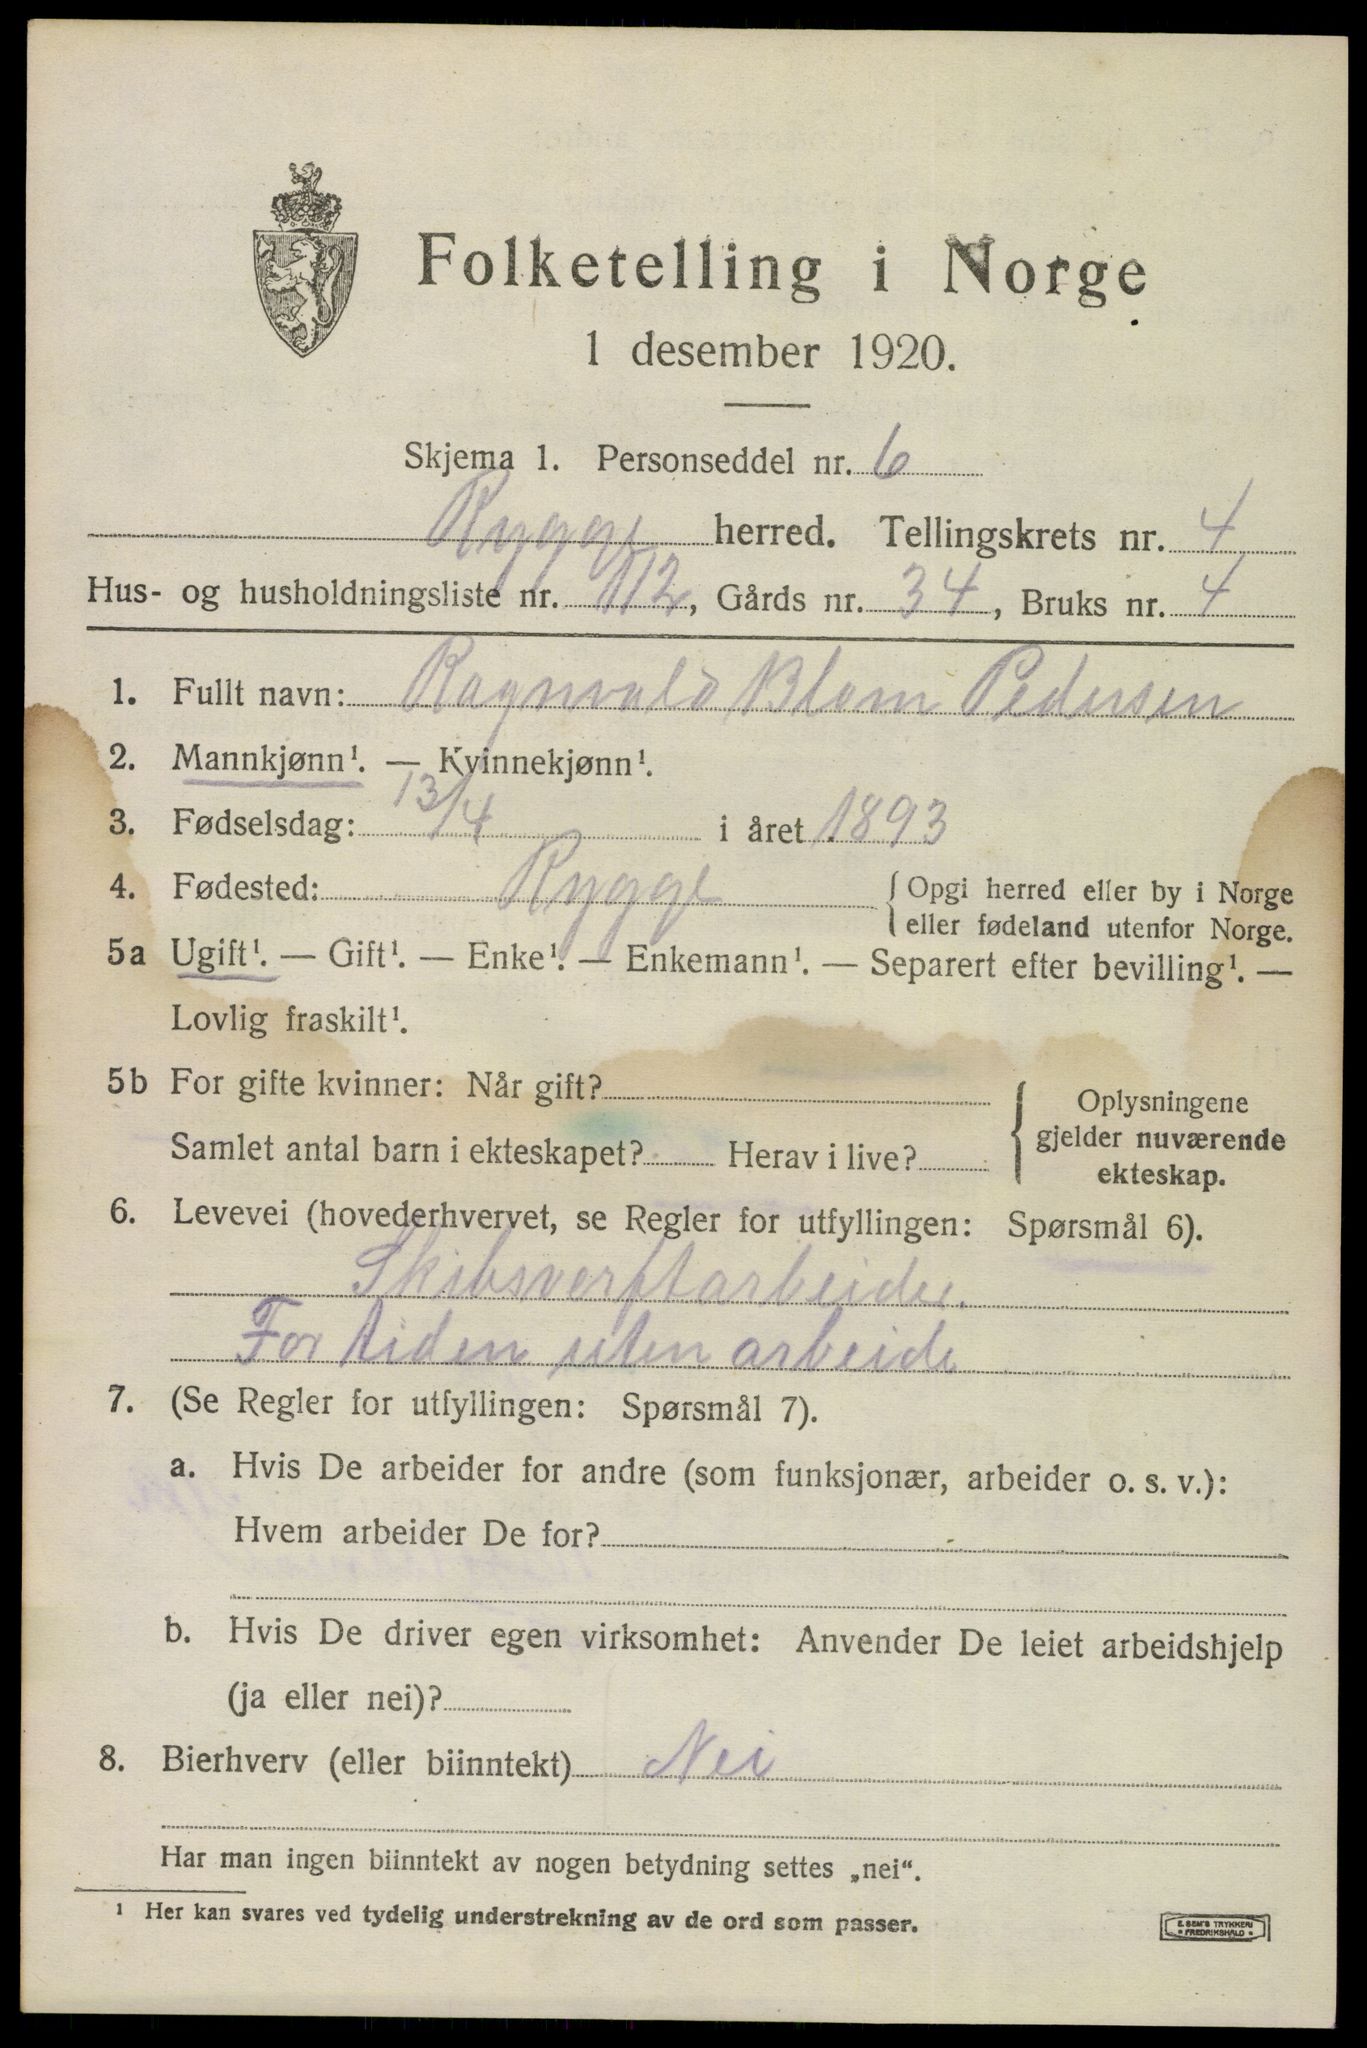 Folketelling i Norge
1 desember 1920.
Skjema 1. Personseddel nr. 6
Rygge herred. Tellingskrets nr. 4
Hus- og husholdningsliste nr. 112, Gårds nr. 34, Bruks nr. 4
1. Fullt navn: Ragnvald Blom Pedersen
2. Mannkjønn¹. — Kvinnekjønn¹.
3. Fødselsdag: 13/4 i året 1893
4. Fødested: Rygge { Opgi herred eller by i Norge
eller fødeland utenfor Norge.
5a Ugift¹. — Gift¹. — Enke¹. — Enkemann¹. — Separert efter bevilling¹. —
Lovlig fraskilt¹.
5b For gifte kvinner: Når gift?
Samlet antal barn i ekteskapet? Herav i live?
Oplysningene
gjelder nuværende
ekteskap.
6. Levevei (hovederhvervet, se Regler for utfyllingen: Spørsmål 6).
Skibsverftarbeider.
For tiden uten arbeide
7. (Se Regler for utfyllingen: Spørsmål 7).
a. Hvis De arbeider for andre (som funksjonær, arbeider o. s. v.):
Hvem arbeider De for?
b. Hvis De driver egen virksomhet: Anvender De leiet arbeidshjelp
(ja eller nei)?
8. Bierhverv (eller biinntekt) Nei
Har man ingen biinntekt av nogen betydning settes „nei“.
¹ Her kan svares ved tydelig understrekning av de ord som passer.
E. SEM'S TRYKKERI
• FREDRIKSHALD •